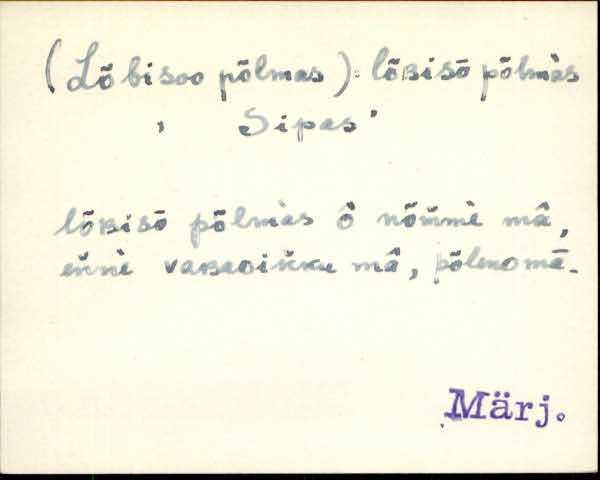 (Lõbisoo põlmas): lõʙisō põlmàs
' Sipas '
lõʙisō põlmàs ô nõm̆mè mâ,
en̆nè vaʙaᴅik̆ku mâ, põlnomā.
Märj.